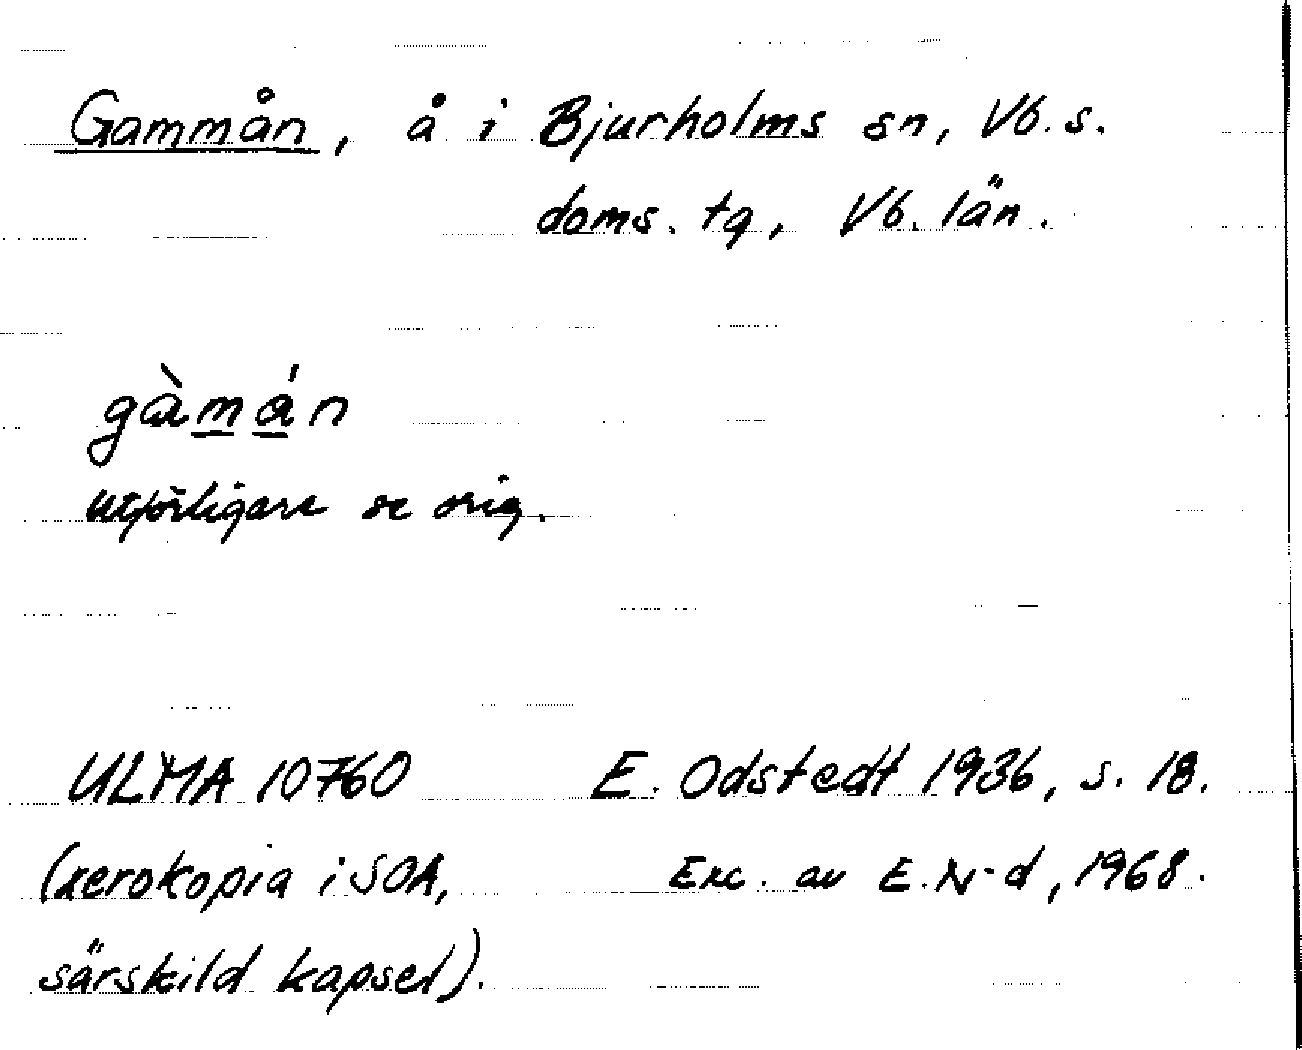 Gammån, å i Bjurholms sn, Vb. s.
doms. tg, Vb. län.
gàmán
utförligare se orig.
ULMA 10760 E. Odstedt 1936, s. 18.
(xerokopia i SOA, Exc. av E. N-d, 1968.
särskild kapsel).